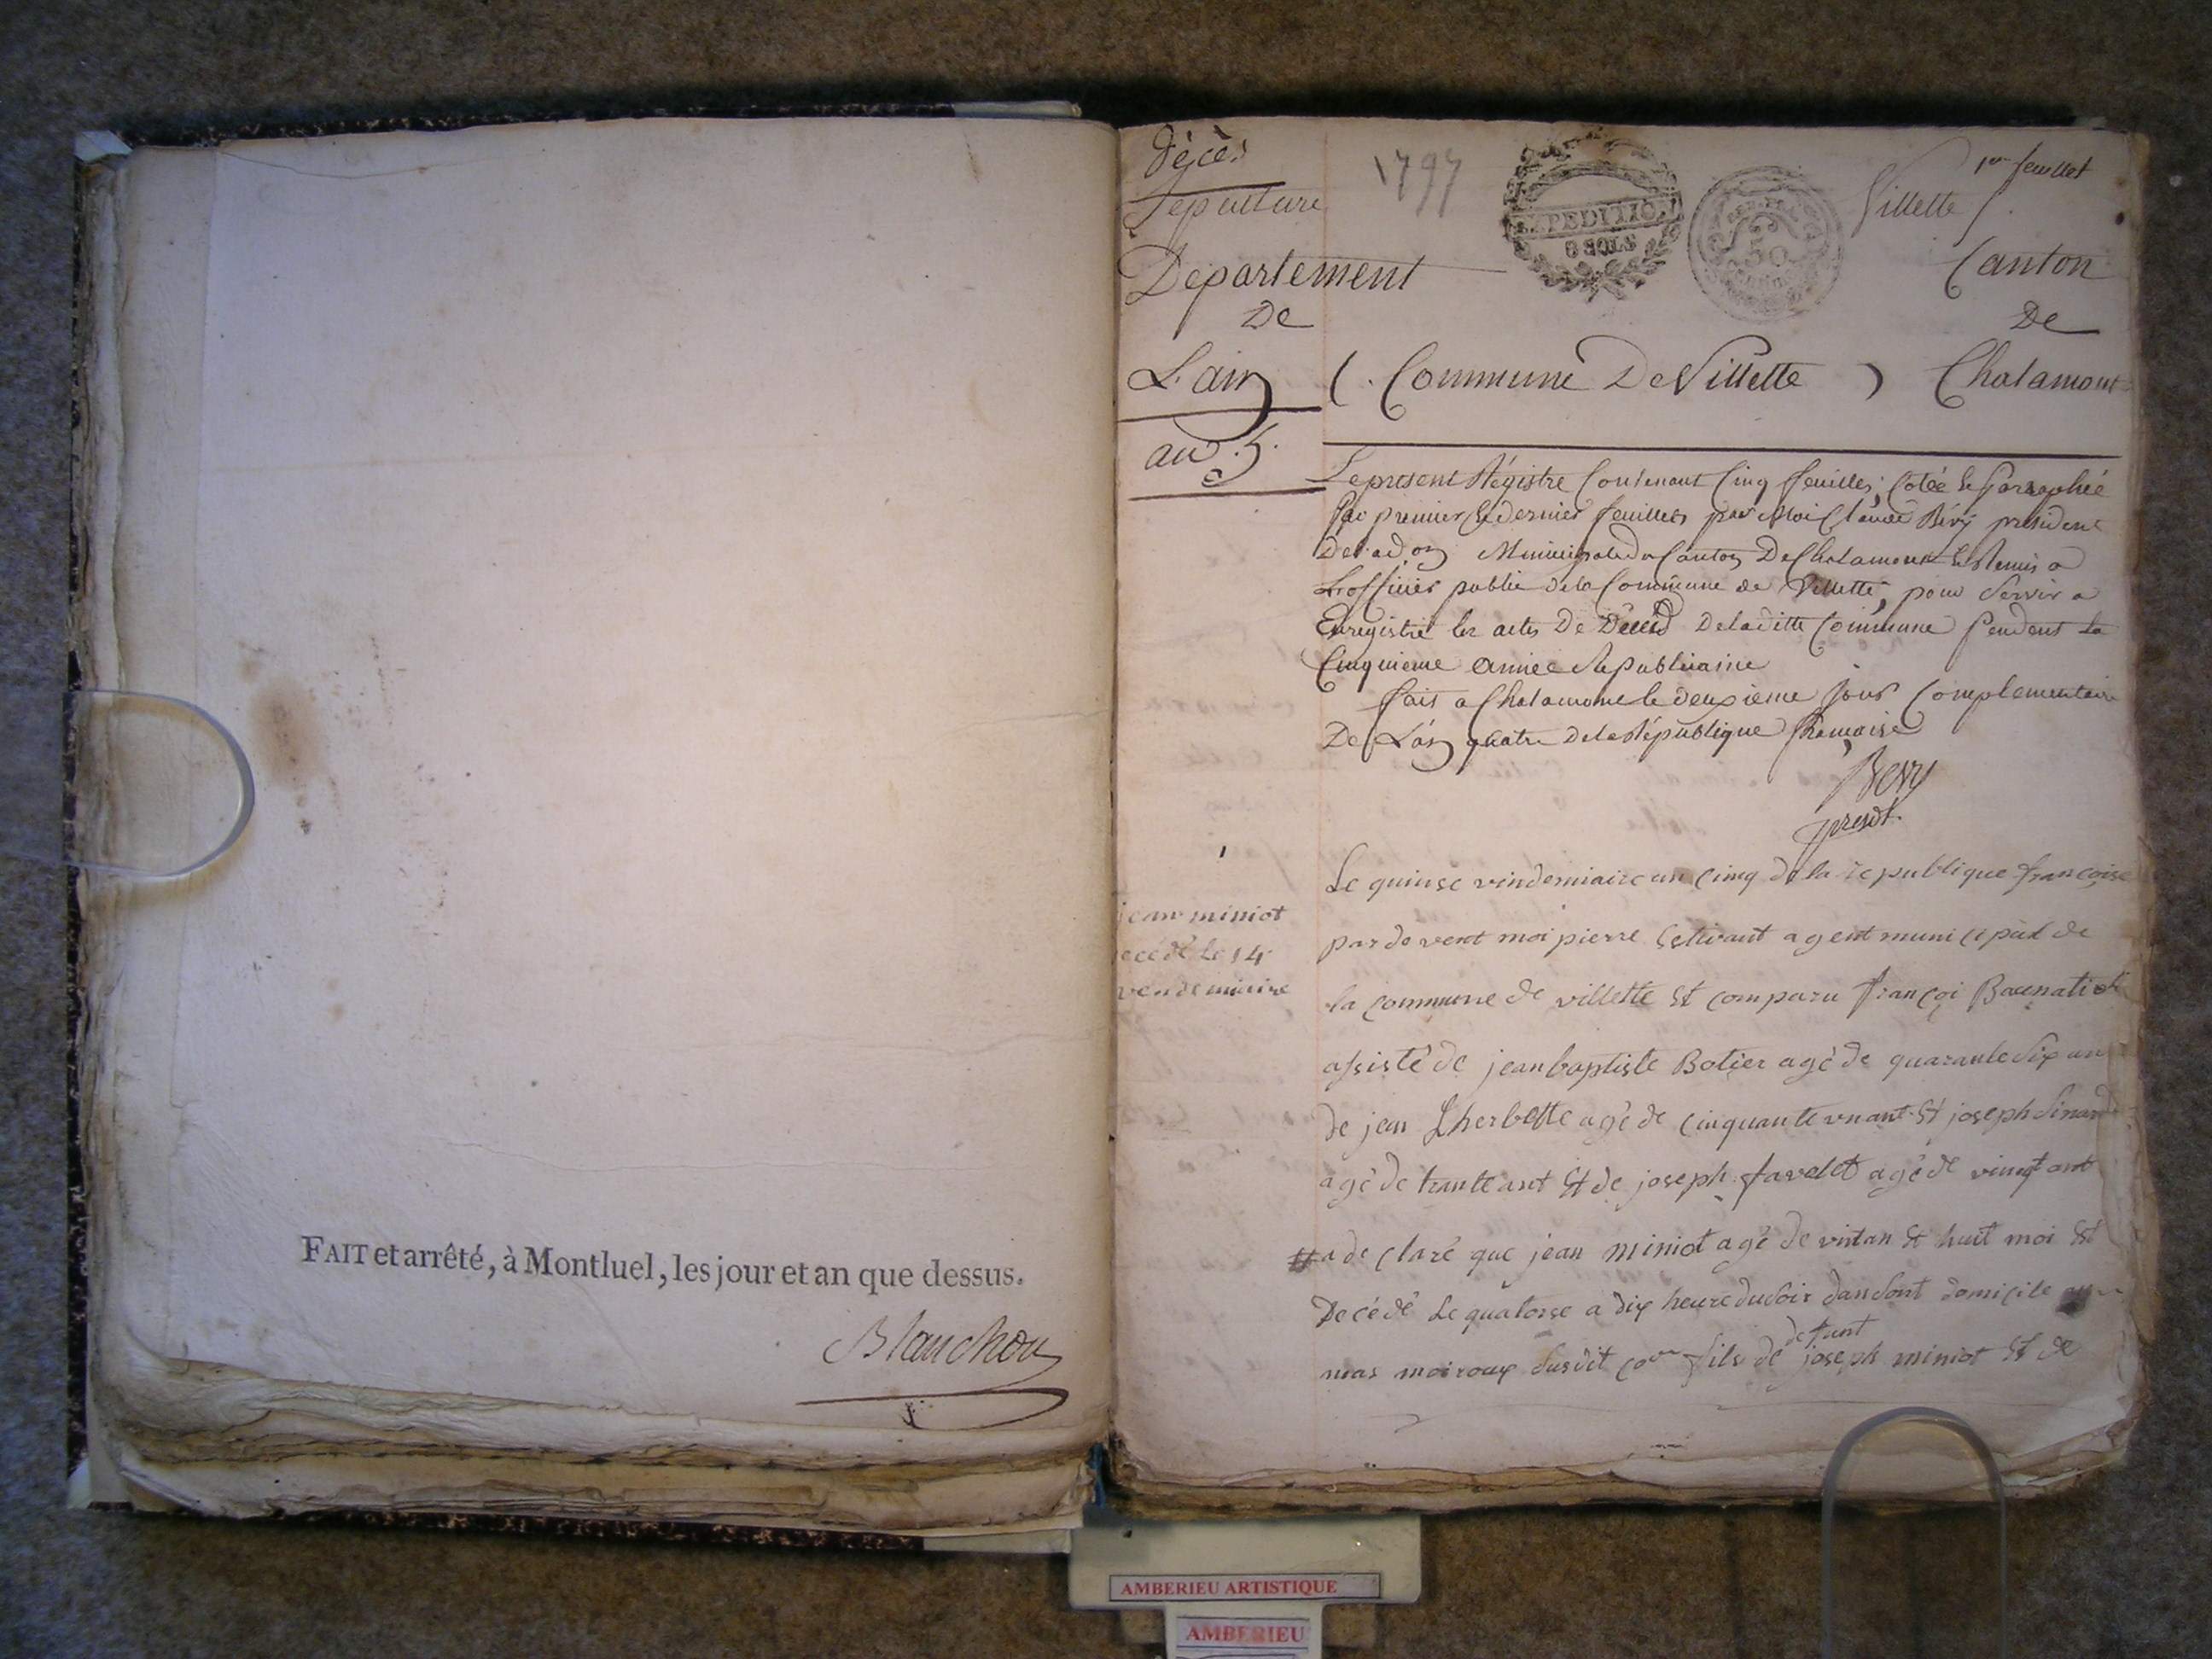 FAIT et arrêté, à Montluel, les jour et an que dessus.
Blanchon
décès
Sepulture
Departement
De
L'ain
an 5.
1797
EXPEDITION
8 SOLS
50
1er feuillet
Villette
Canton
De
Chalamont
(. Commune De Villette )
Le present Régistre Contenant Cinq feuilles, Cotée & Paraphée
par premier & dernier feuillets par Moi Claude Bévy president
De l'ad.on Municipale du Canton De Chalamont & Remis a
L'officier public de la Commune de Villette, pour Servir a
Enregistré les actes De Décès De laditte Commune pendent la
Cinquieme année Republicaine
fait a Chalamont le deuxieme jour Complementaire
De L'an quatre de la République françaisse
Bevy
presdt.
1
jean miniot
decédé le 14
vendemiaire
Le quinse vindemiaire an cinq de la republique françoise
par devent moi pierre agent municipal de
la commune de villette st comparu françoi
assisté de jean baptiste Botier agé de quarante six an
de jean Lherbette agé de cinquante vn ant st joseph Sinard
agé de trante ant st de joseph favelet agé de vingt ant
a de claré que jean miniot agé de vintan st huit moi st
Decédé le quatorse a dix heure du soir dan sont domicile
mas moiroux susdit co.ne fils de defunt joseph miniot st de
AMBERIEU ARTISTIQUE
AMBERIEU